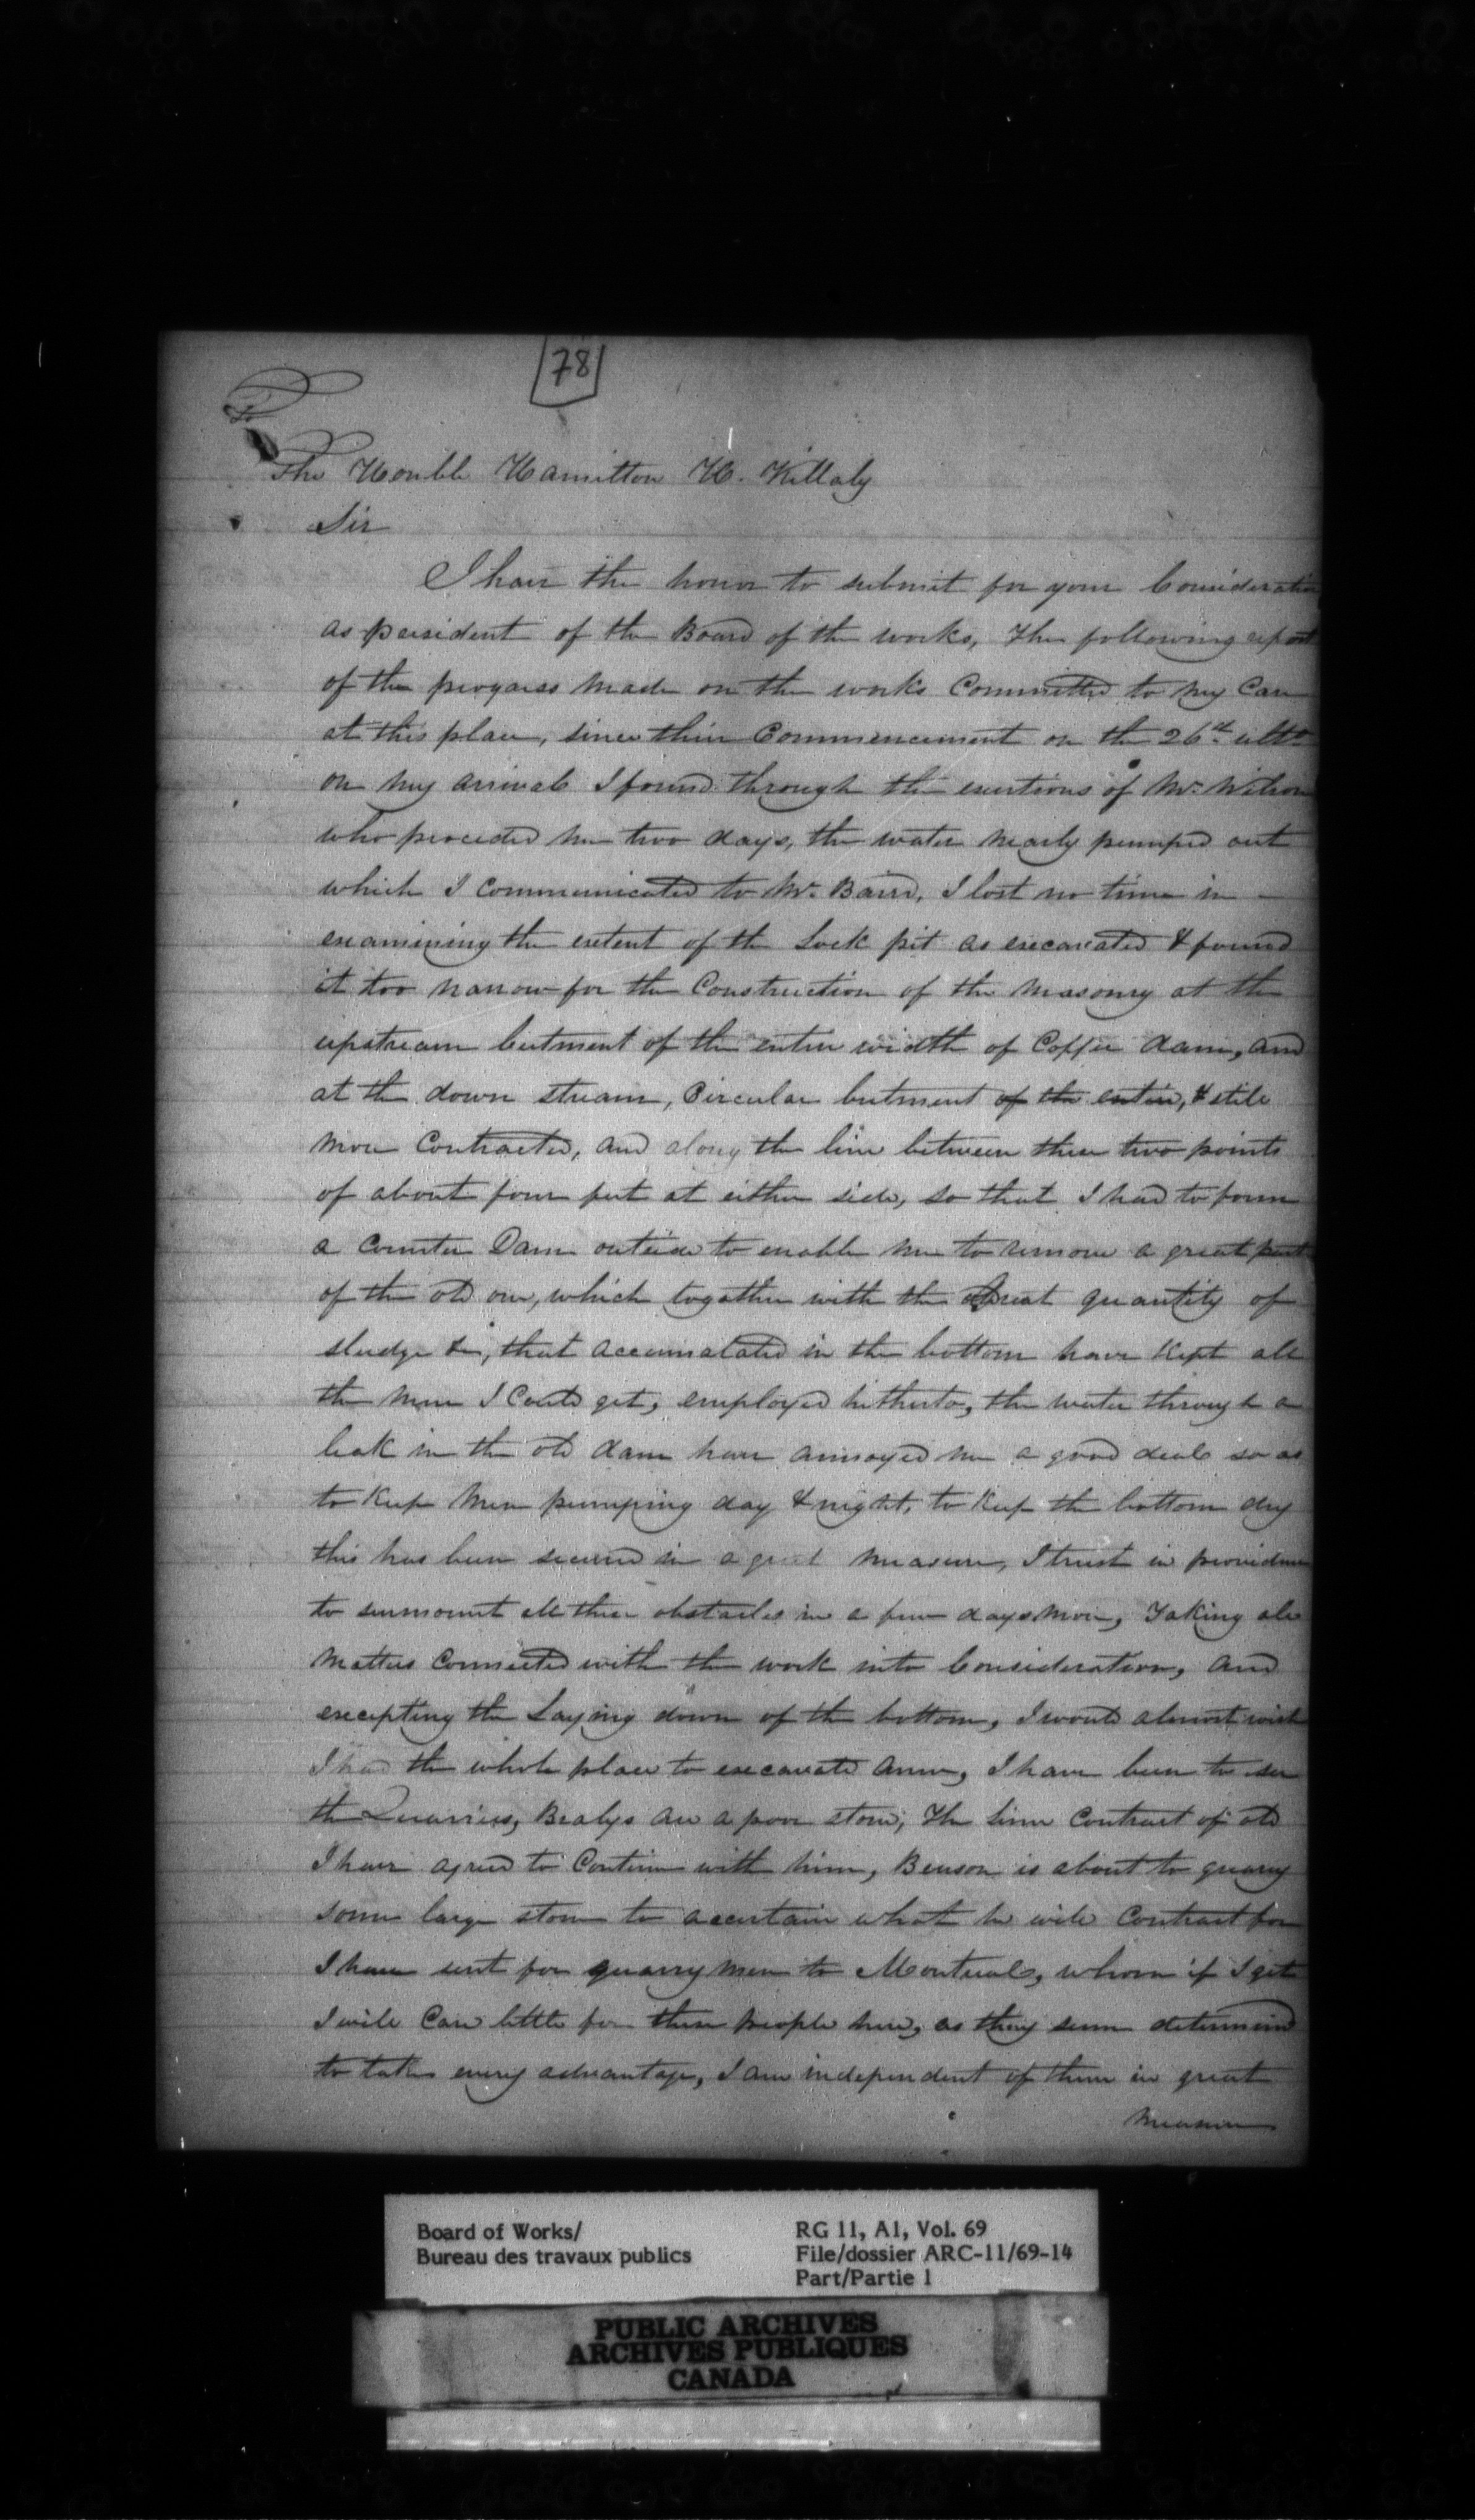 78
To
The Honble Hamilton H. Killaly
Sir
I have the honor to submit for your Consideration
as president of the Board of the works, the following report
of the progress made on the works Committed to my Care
at this place, since their Commencement on the 26th ulto
on my arrival I found through the exertions of Mr. Wilson
who preceded me two days, the water nearly pumped out
which I communicated to Mr. Baird, I lost no time in
examining the extent of the Lock pit as excavated & found
it too narrow for the Construction of the masonry at the
upstream butment of the entire width of Coffer dam, and
at the down stream, Circular butment of the entire, & still
more Contracted, and along the line between these two points
of about four feet at either side, so that I had to form
a Counter Dam outside to enable me to remove a great part
of the old one, which together with the great quantity of
sludge &c, that accumalated in the bottom have Kept all
the men I Could get, employed hitherto, the water through a
leak in the old dam have annoyed me a good deal so as
to Keep men pumping day & night, to Keep the bottom dry
this has been secured in a great measure, I trust in providence
to surmount all these obstacles in a few days more, Taking all
matters Connected with the work into Consideration, and
excepting the Laying down of the bottom, I would almost wish
I had the whole place to excavate anew, I have been to see
the Quarries, Bealys are a poor stone, the lime Contract of old
I have agreed to Continue with him, Benson is about to quarry
some large stone to accertain what he will Contract for
I have sent for quarry men to Montreal, whom if I get
I will Care little for these people here, as they seem determined
to take every advantage, I am independent of them in great
measure
Board of Works/
Bureau des travaux publics
RG 11, A1, Vol. 69
File/dossier ARC-11/69-14
Part/Partie 1
PUBLIC ARCHIVES
ARCHIVES PUBLIQUES
CANADA